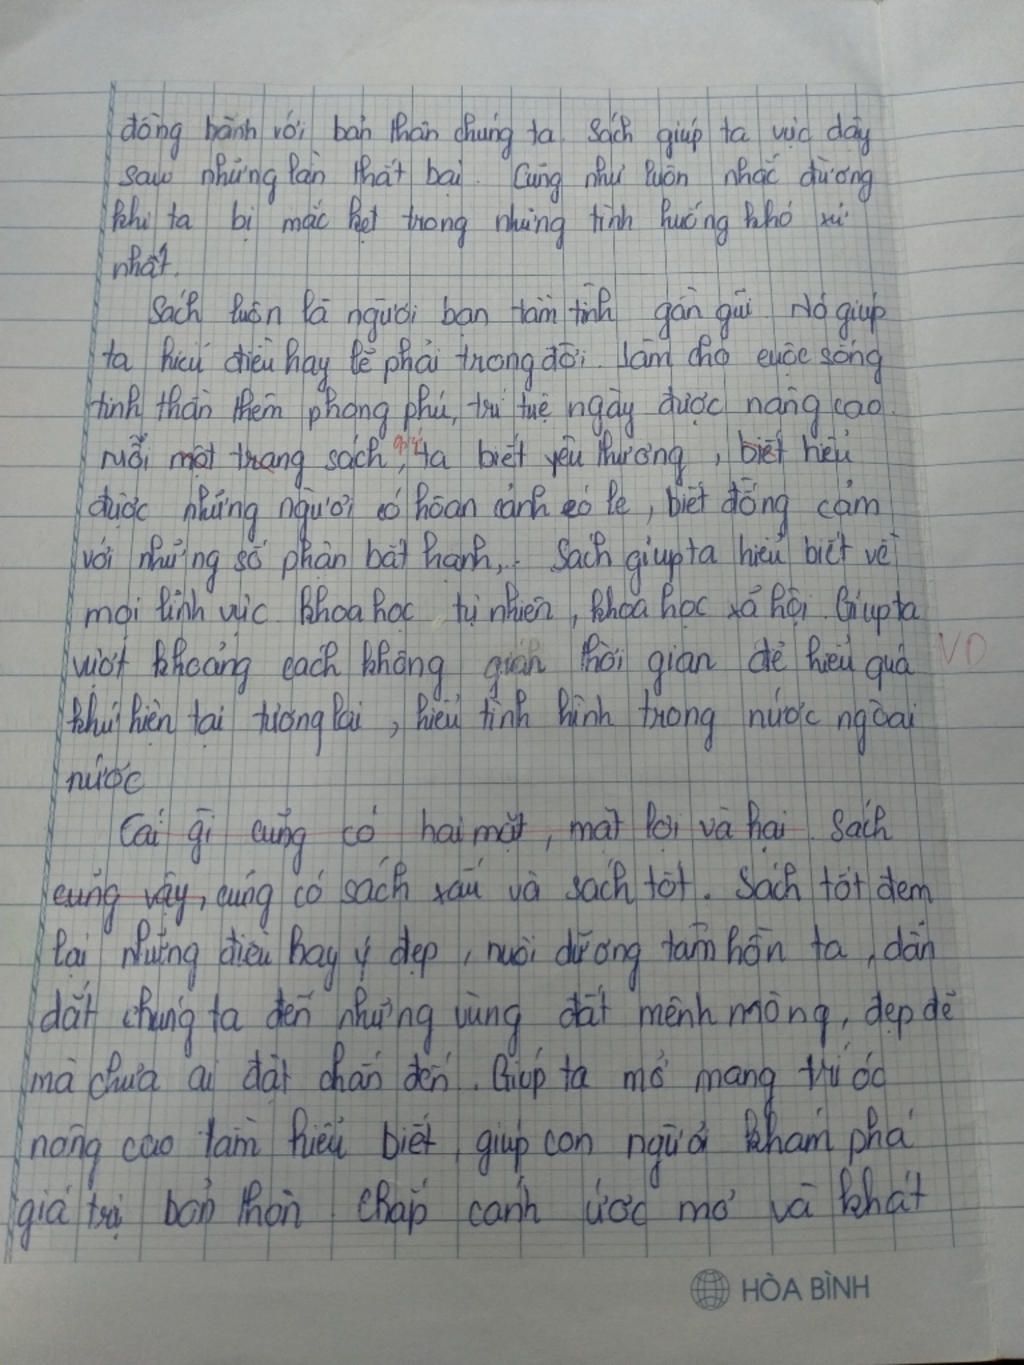 đồng hành với bản thân chúng ta. Sách giúp ta vực dây
sau những lần thất bại. Cũng như luôn nhắc đường
khi ta bị mắc kẹt trong những tình huống khó xử
nhất.
Sách luôn là người bạn tâm tình gần gũi. Nó giúp
ta hiểu điều hay lẽ phải trong đời. Làm cho cuộc sống
tinh thần thêm phong phú, trí tuệ ngày được nâng cao.
mỗi một trang sách, ta biết yêu thương, biết hiểu
được những người có hoàn cảnh éo le, biết đồng cảm
với những số phận bất hạnh,.. Sách giúp ta hiểu biết về
mọi lĩnh vực khoa học tự nhiên, khoa học xã hội. Giúp ta
vượt khoảng cách không gian thời gian để hiểu quá
VD
khứ hiện tại tương lai, hiểu tình hình trong nước ngoài
nước
Cái gì cũng có hai mặt, mặt lợi và hại. Sách
cũng vậy, cũng có sách xấu và sách tốt. Sách tốt đem
lại những điều hay ý đẹp, nuôi dưỡng tâm hồn ta, dẫn
dắt chúng ta đến những vùng đất mênh mông, đẹp đẽ
mà chưa ai đặt chân đến. Giúp ta mở mang trí óc
nâng cao tầm hiểu biết, giúp con người khám phá
giá trị bản thân. Chắp cánh ước mơ và khát
HÒA BÌNH